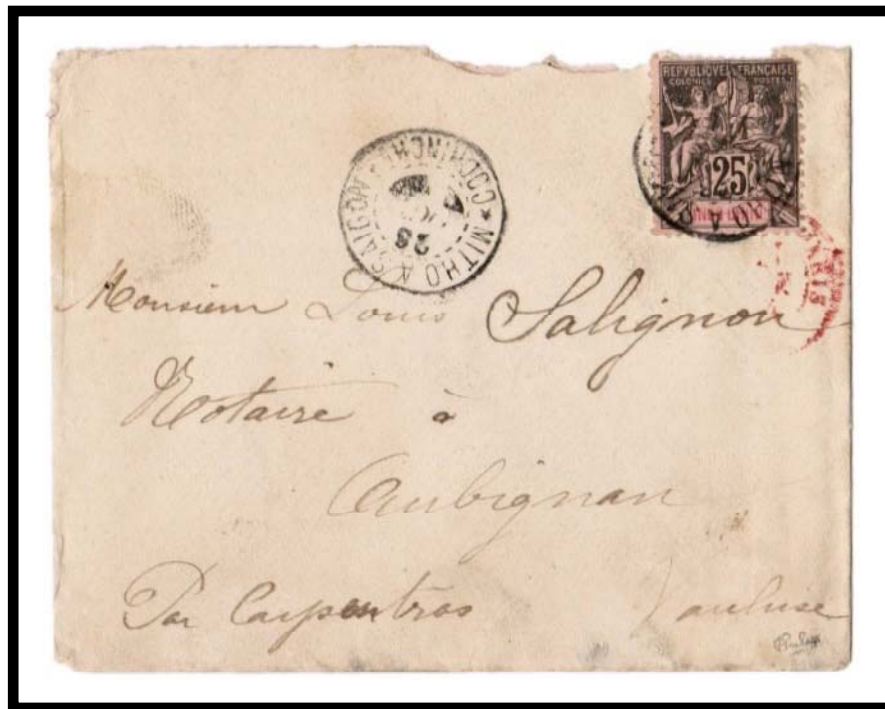 REPVBLIQVE FRANÇAISE
COLONIES POSTES
25
INDO-CHINE
MITHO A SAIGON * COCHINCHINE *
4
23
Monsieur Louis Salignon
Notaire à
Aubignan
Par Carpentras Vaucluse